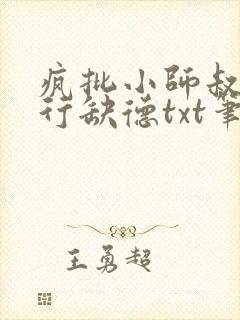 疯批小师叔
行缺德txt笔
王勇超